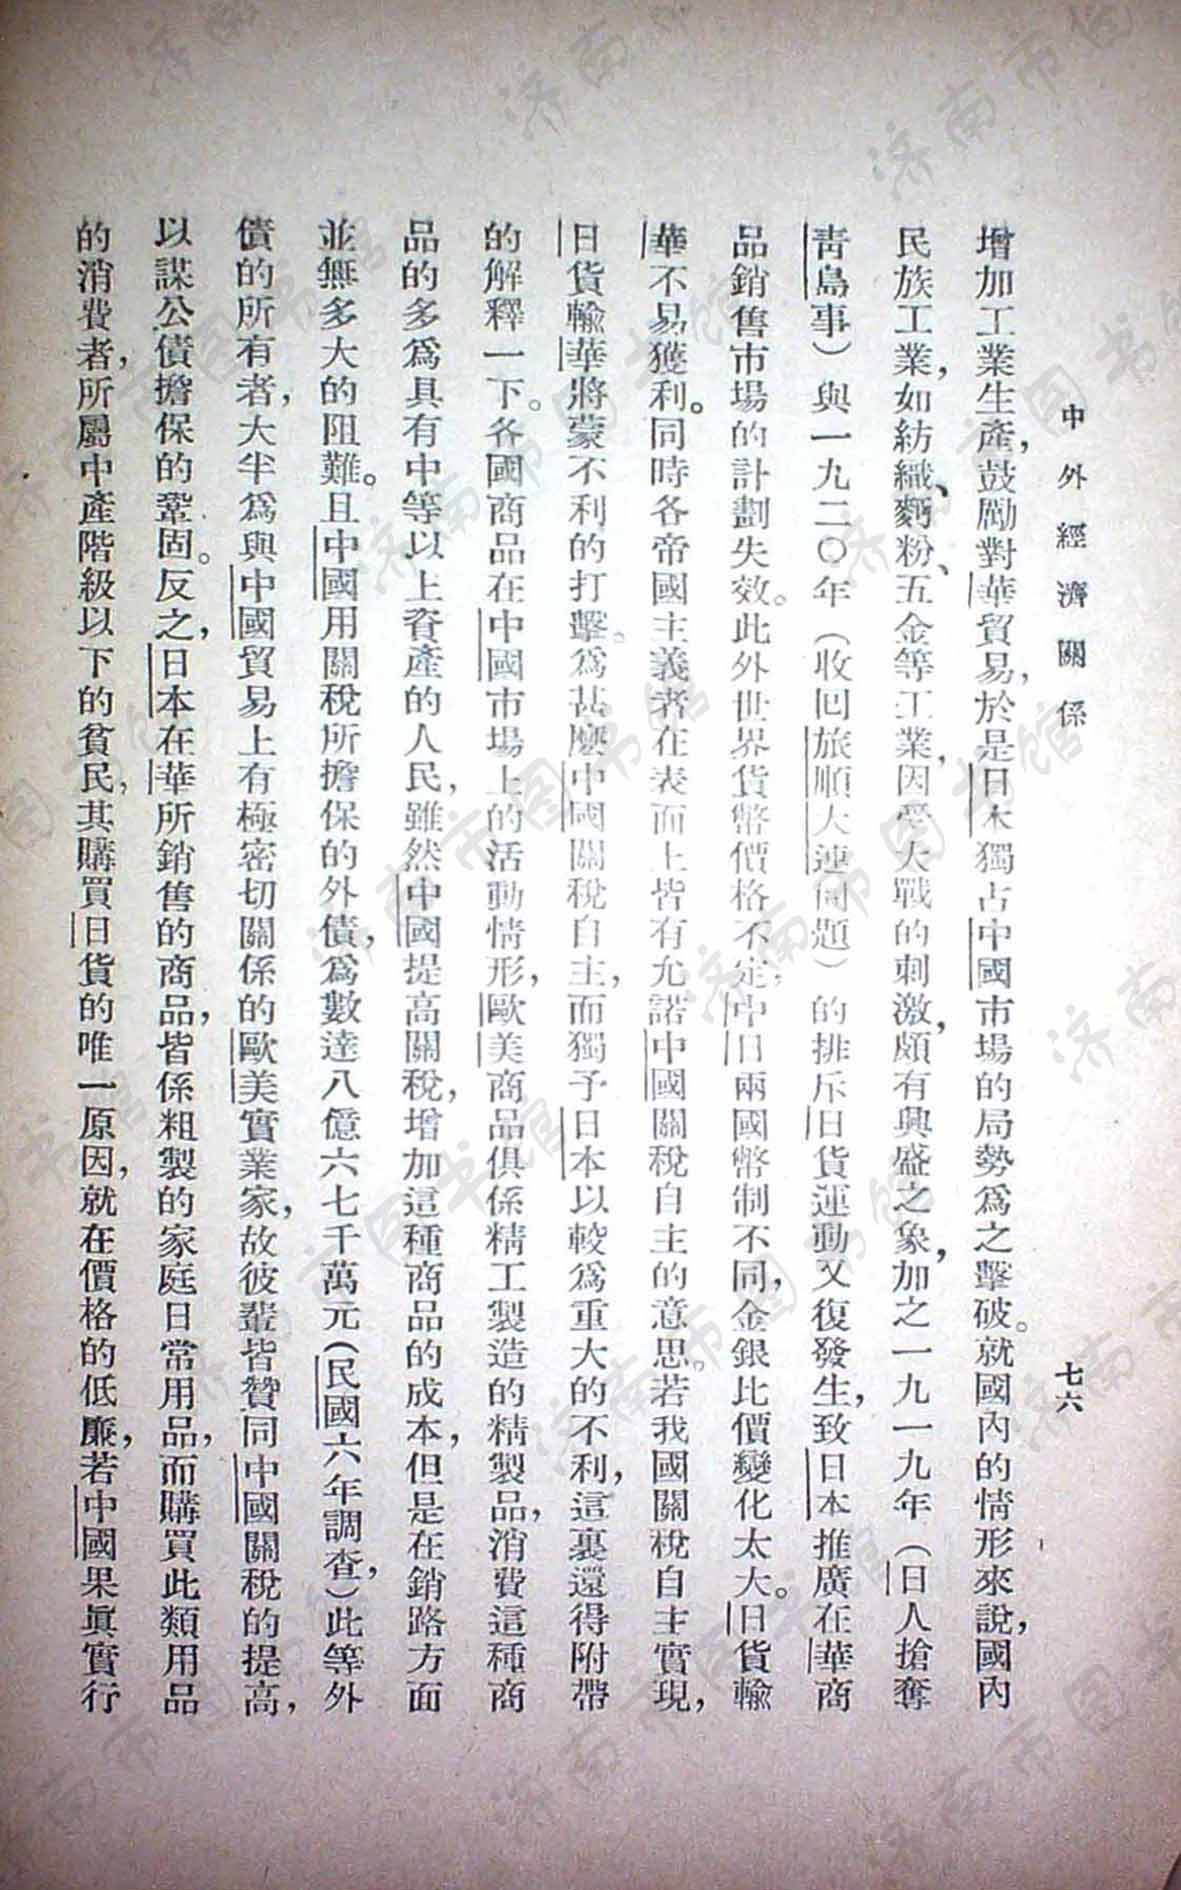 中外經濟關係
七六
增加工業生產，鼓勵對華貿易，於是日本獨占中國市場的局勢爲之擊破。就國內的情形來說，國內
民族工業，如紡織、麪粉、五金等工業，因受大戰的刺激，頗有興盛之象，加之一九一九年（日人搶奪
青島事）與一九二〇年（收回旅順大連問題）的排斥日貨運動又復發生，致日本推廣在華商
品銷售市場的計劃失效。此外世界貨幣價格不定，中日兩國幣制不同，金銀比價變化太大。日貨輸
華不易獲利。同時各帝國主義者在表面上皆有允諾中國關稅自主的意思。若我國關稅自主實現，
日貨輸華將蒙不利的打擊。爲甚麼中國關稅自主，而獨予日本以較爲重大的不利，這裏還得附帶
的解釋一下。各國商品在中國市場上的活動情形，歐美商品俱係精工製造的精製品，消費這種商
品的多爲具有中等以上資產的人民，雖然中國提高關稅，增加這種商品的成本，但是在銷路方面
並無多大的阻難。且中國用關稅所擔保的外債，爲數達八億六七千萬元（民國六年調查，）此等外
債的所有者，大半爲與中國貿易上有極密切關係的歐美實業家，故彼輩皆贊同中國關稅的提高，
以謀公債擔保的鞏固。反之，日本在華所銷售的商品，皆係粗製的家庭日常用品，而購買此類用品
的消費者，所屬中產階級以下的貧民，其購買日貨的唯一原因，就在價格的低廉，若中國果眞實行
济南市图书馆